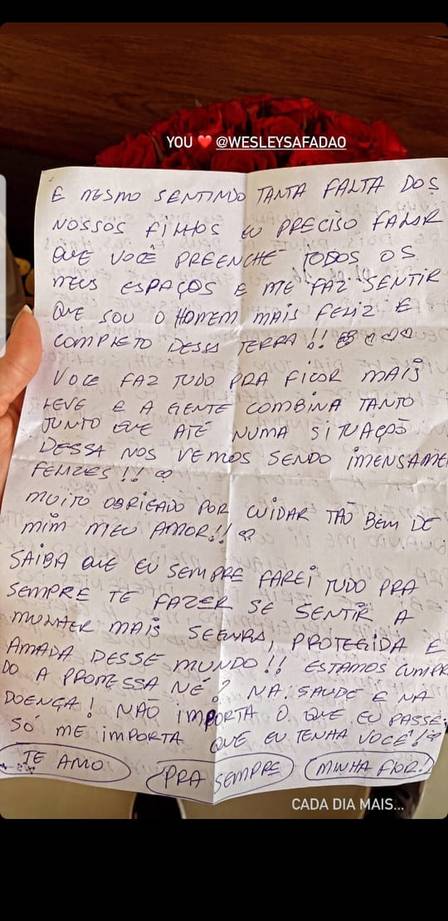 YOU ❤️ @WESLEYSAFADAO
E MESMO SENTINDO TANTA FALTA DOS
NOSSOS FILHOS EU PRECISO FALAR
QUE VOCÊ PREENCHE TODOS OS
MEUS ESPAÇOS E ME FAZ SENTIR
QUE SOU O HOMEM MAIS FELIZ E
COMPLETO DESSA TERRA!! ♡♡♡♡
VOCE FAZ TUDO PRA FICAR MAIS
LEVE E A GENTE COMBINA TANTO
JUNTO QUE ATÉ NUMA SITUAÇÃO
DESSA NOS VEMOS SENDO IMENSAME
FELIZES!! ♡
MUITO OBRIGADO POR CUIDAR TÃO BEM DE
MIM MEU AMOR!! ♡
SAIBA QUE EU SEMPRE FAREI TUDO PRA
SEMPRE TE FAZER SE SENTIR A
MULHER MAIS SEGURA, PROTEGIDA E
AMADA DESSE MUNDO!! ESTAMOS CUMPR
DO A PROMESSA NÉ? NA SAUDE E NA
DOENÇA! NÃO IMPORTA O QUE EU PASSE
SÓ ME IMPORTA QUE EU TENHA VOCÊ!!
TE AMO PRA SEMPRE MINHA FLOR!
CADA DIA MAIS...